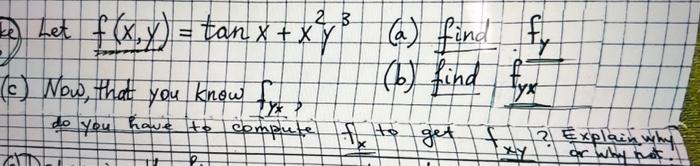 Let f(x,y) = tan x + x²y³ (a) find f_y
(b) find f_yx
(c) Now, that you know f_yx,
do you have to compute f_x to get f_xy? Explain why
or why not.